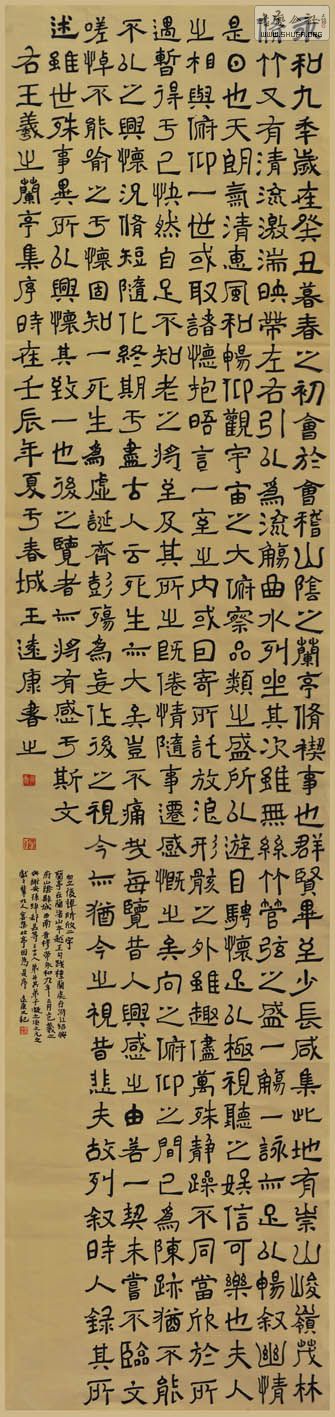 書法
WWW.SHUFA.ORG
永和九年歲在癸丑暮春之初會於會稽山陰之蘭亭脩禊事也群賢畢至少長咸集此地有崇山峻嶺茂林
脩竹又有清流激湍映帶左右引以為流觴曲水列坐其次雖無絲竹管弦之盛一觴一詠亦足以暢叙幽情
是日也天朗氣清惠風和暢仰觀宇宙之大俯察品類之盛所以遊目騁懷足以極視聽之娛信可樂也夫人
之相與俯仰一世或取諸懷抱晤言一室之内或因寄所託放浪形骸之外雖趣萬殊静躁不同當欣於所
遇暫得于己快然自足不知老之將至及其所之既倦情隨事遷感慨之矣向之俯仰之間已為陳跡猶不能
不以之興懷況脩短隨化終期于盡古人云死生亦大矣豈不痛哉每覽昔人興感之由若一契未嘗不臨文
嗟悼不能喻之于懷固知一死生為虛誕齊彭殤為妄作後之視今亦猶今之視昔悲夫故列叙時人錄其所
述雖世殊事異所以興懷其致一也後之覽者亦將有感于斯文
右王羲之蘭亭集序時在壬辰年夏于春城王遠康書之
蘭亭在蘭渚山下越王句踐種蘭處在浙江紹興
府山陰縣城西南晉穆帝永和九年三月三日羲之